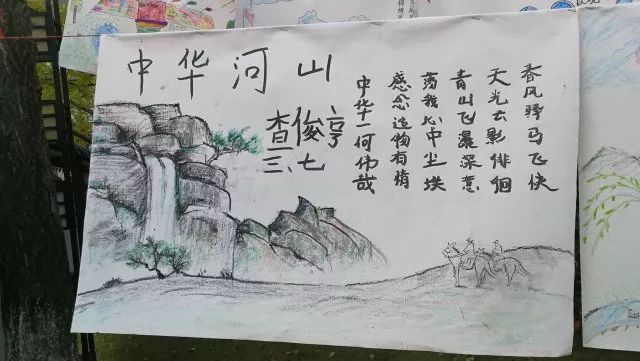 中华河山
查俊亨
三、七
春风驿马飞快
天光云影徘徊
青山飞瀑深意
荡我心中尘埃
感念造物有情
中华一何伟哉